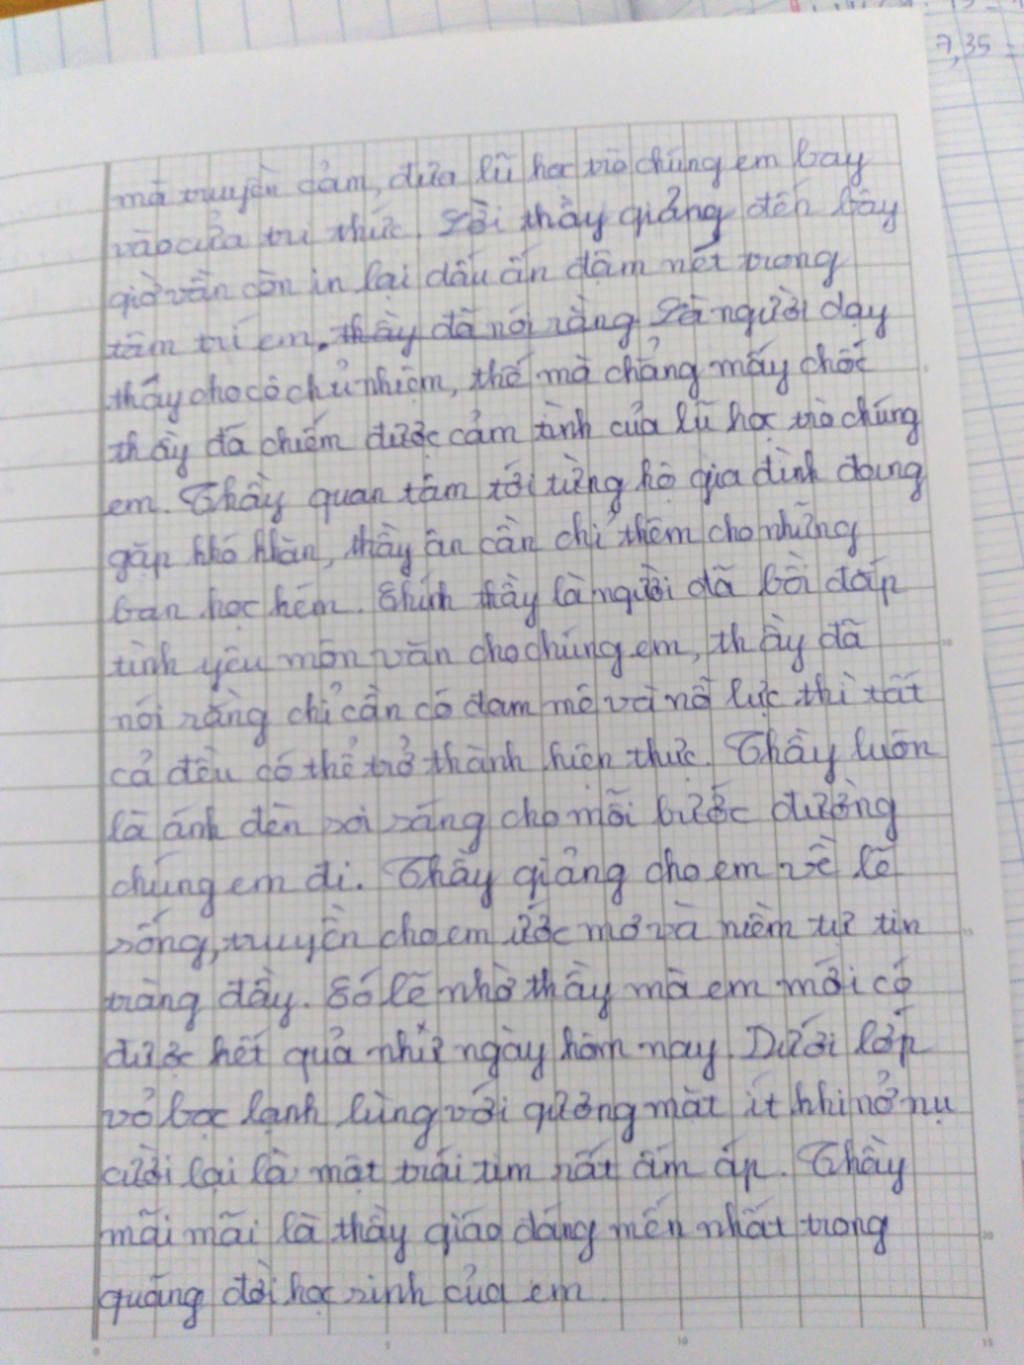 7,35 =
mà truyền cảm, đưa lũ học trò chúng em bay
vào cửa tri thức. Lời thầy giảng đến bây
giờ vẫn còn in lại dấu ấn đậm nét trong
tâm trí em. thầy đã nói rằng Là người dạy
thay cho cô chủ nhiệm, thế mà chẳng mấy chốc
thầy đã chiếm được cảm tình của lũ học trò chúng
em. Thầy quan tâm tới từng hộ gia đình đang
gặp khó khăn, thầy ân cần chỉ thêm cho những
bạn học kém. Chính thầy là người đã bồi đắp
tình yêu môn văn cho chúng em, thầy đã
nói rằng chỉ cần có đam mê và nỗ lực thì tất
cả đều có thể trở thành hiện thực. Thầy luôn
là ánh đèn soi sáng cho mỗi bước đường
chúng em đi. Thầy giảng cho em về lẽ
sống, truyền cho em ước mơ và niềm tự tin
tràng đầy. Có lẽ nhờ thầy mà em mới có
được kết quả như ngày hôm nay. Dưới lớp
vỏ bọc lạnh lùng với gương mặt ít khi nở nụ
cười lại là một trái tim rất ấm áp. Thầy
mãi mãi là thầy giáo đáng mến nhất trong
quãng đời học sinh của em.
0 5 10 15
10
15
20